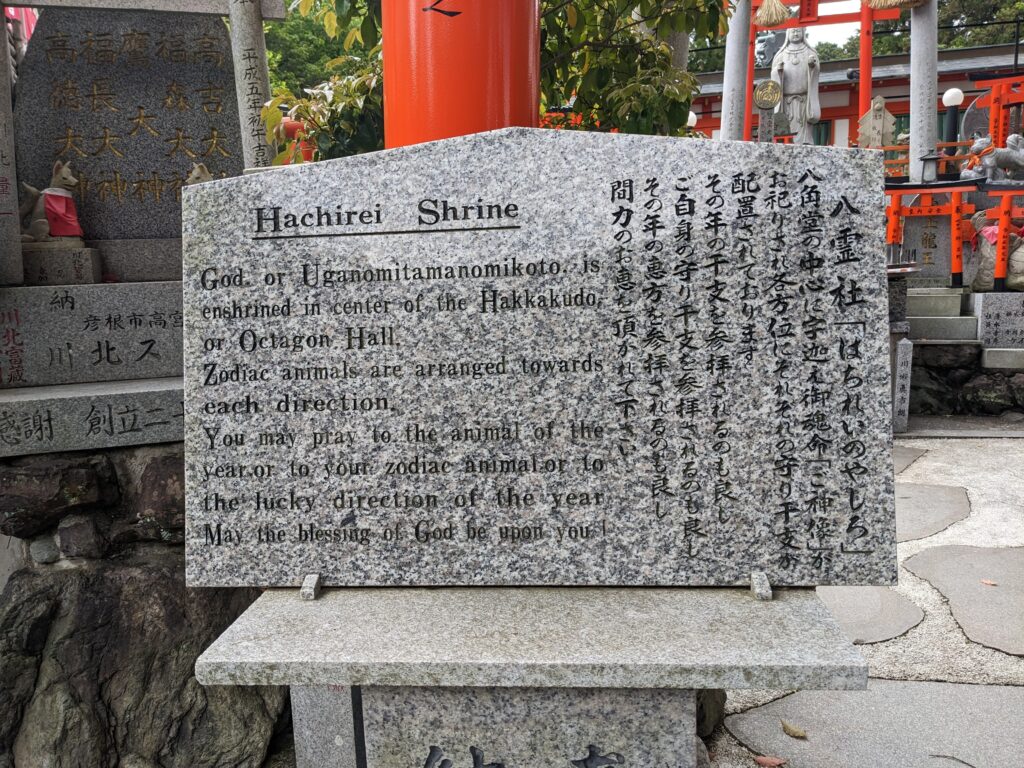 Hachirei Shrine
God, or Uganomitamanomikoto, is
enshrined in center of the Hakkakudo,
or Octagon Hall.
Zodiac animals are arranged towards
each direction.
You may pray to the animal of the
year,or to your zodiac animal,or to
the lucky direction of the year
May the blessing of God be upon you!
八霊社「はちれいのやしろ」
八角堂の中心に宇迦之御魂命「ご神像」が
お祀りされ各方位にそれぞれの守り干支が
配置されております
その年の干支を参拝されるのも良し
ご自身の守り干支を参拝されるのも良し
その年の恵方を参拝されるのも良し
間力のお恵を頂かれて下さい
高吉大
福森大
鷹大神
福長大神
高徳大神
納
彦根市高宮
川北ス
感謝 創立二十
川北富蔵